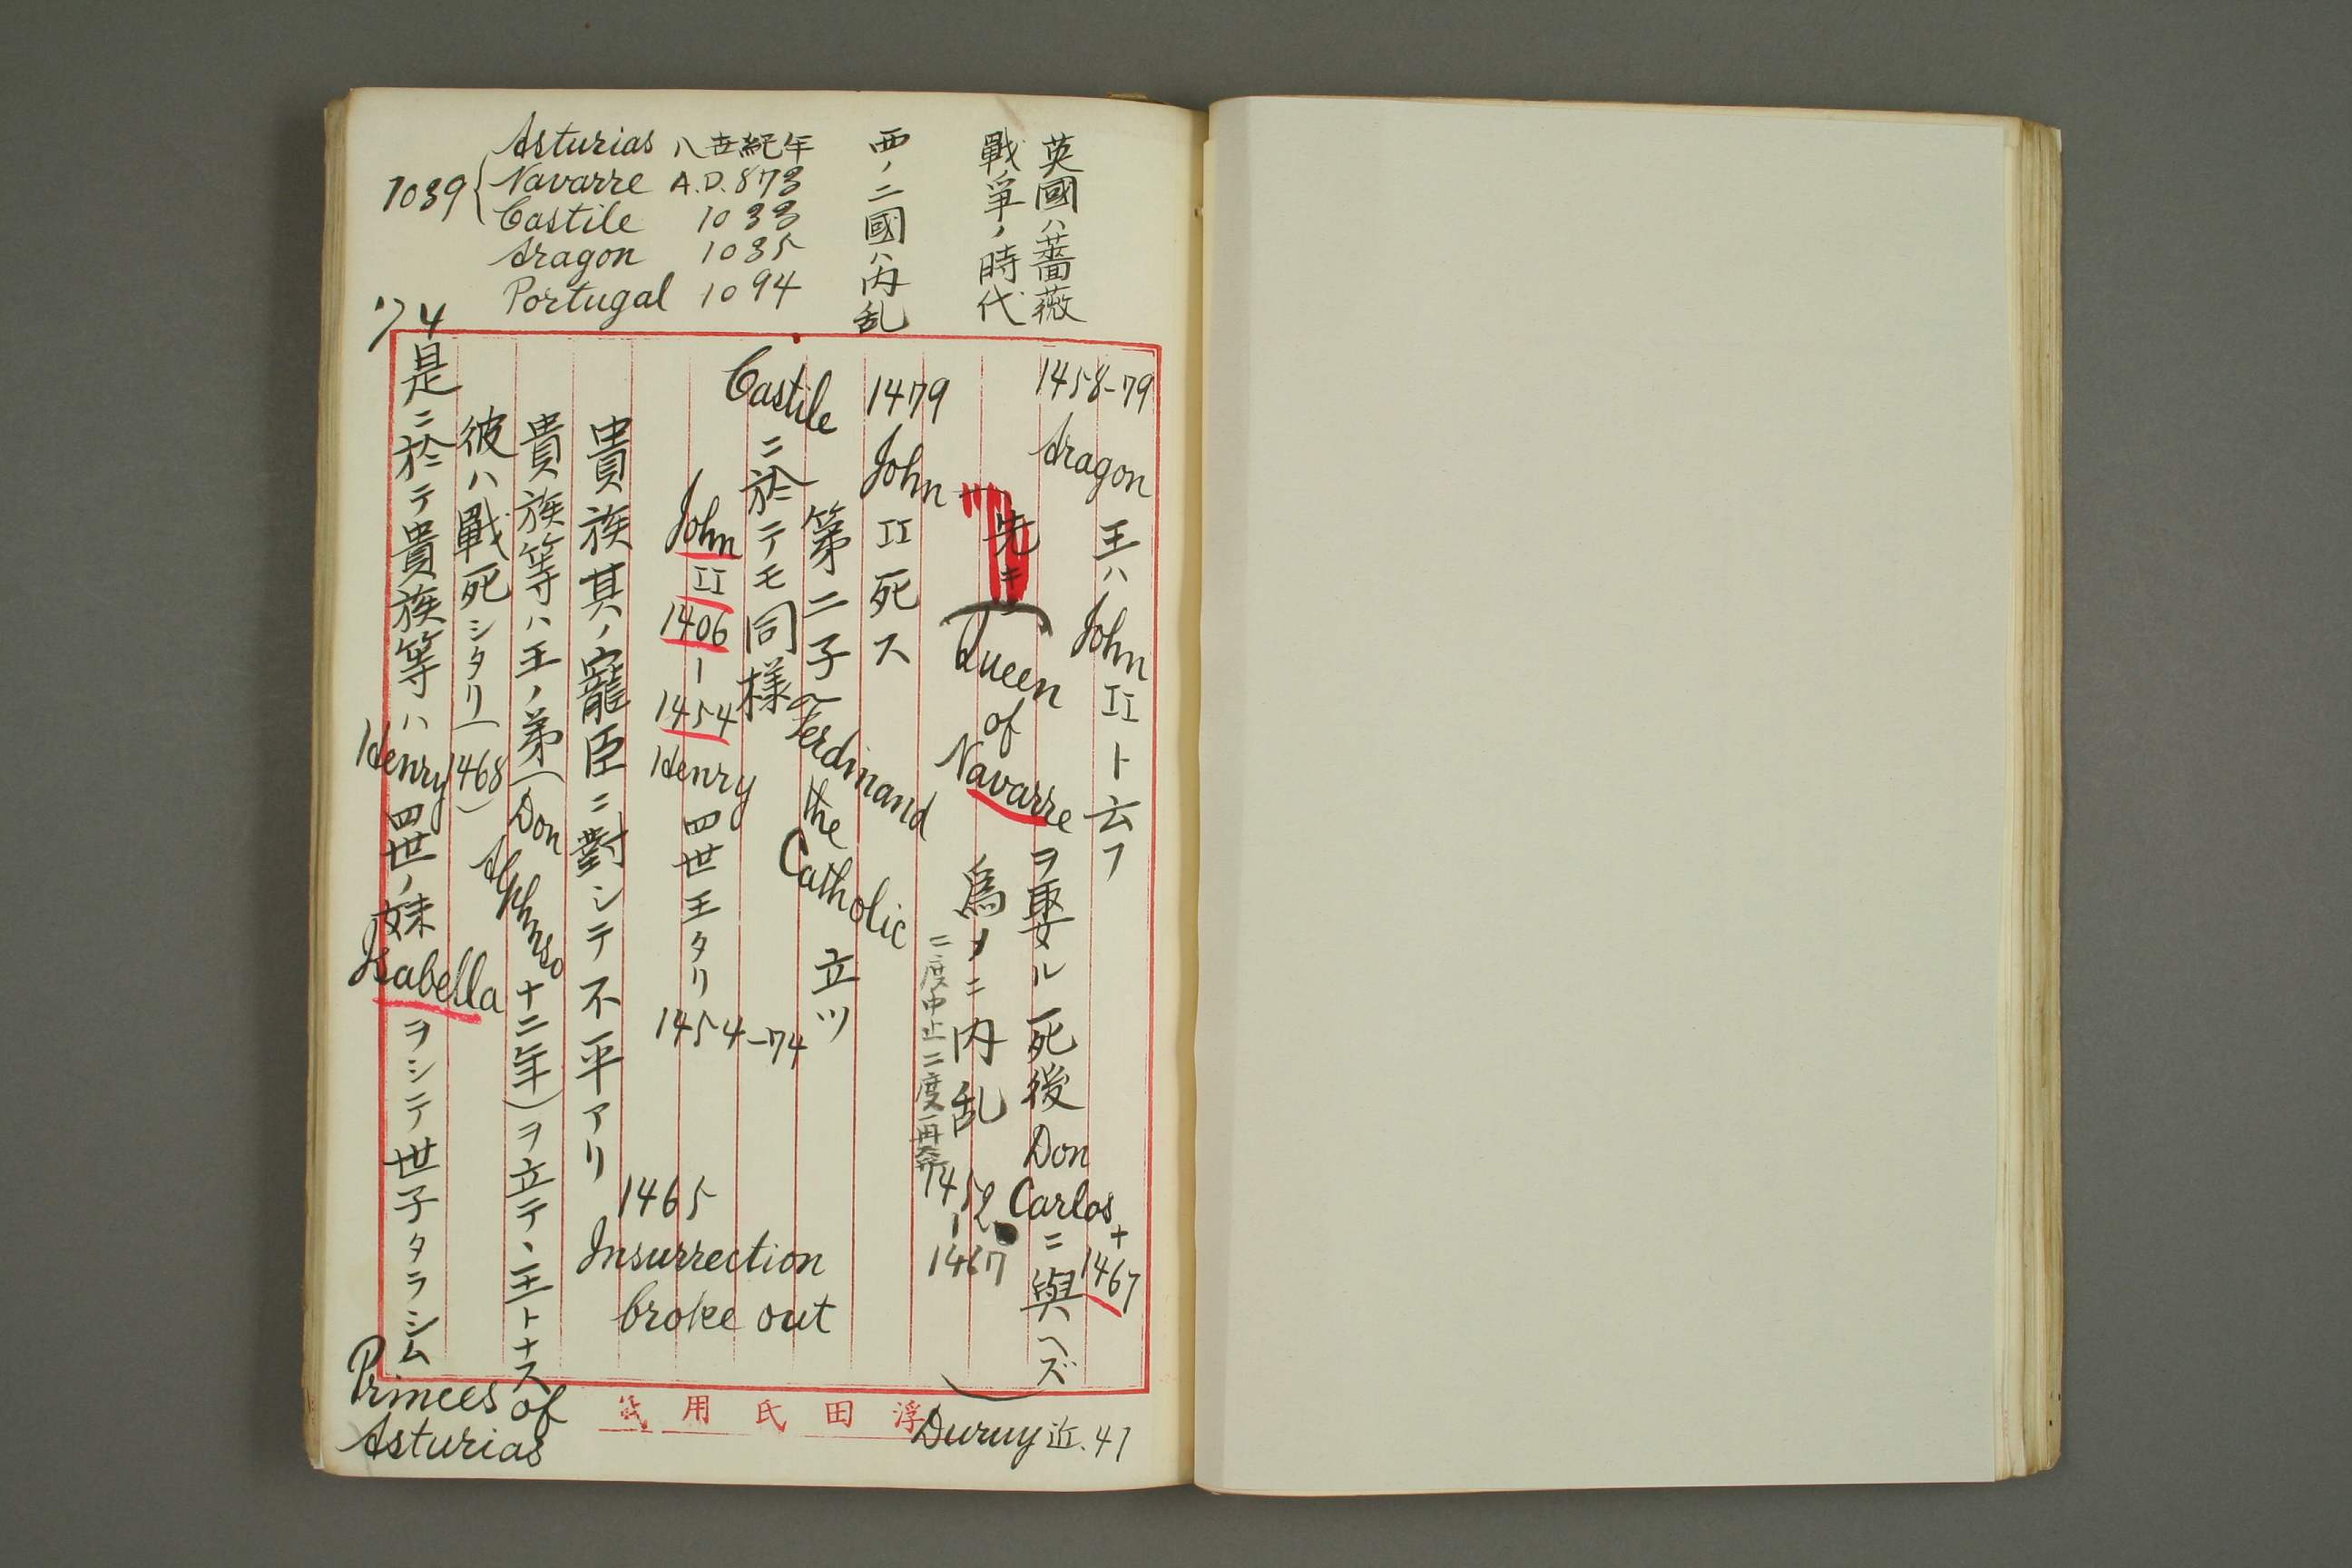 英國ハ薔薇
戰爭ノ時代
西ノ二國ハ内乱
Asturias 八世紀年
Navarre A.D. 873
Castile 1033
Aragon 1035
Portugal 1094
1039
74
1458-79
Aragon 王ハ John II ト云フ
先キ Queen of Navarre ヲ娶ル 死後 Don Carlos ニ與ヘズ
+1467
為メニ内乱 1452-1467
二度中止二度再発
1479 John II 死ス
第二子 Ferdinand the Catholic 立ツ
Castile ニ於テモ同様
John II 1406-1454 Henry 四世王タリ 1454-74
1465 Insurrection broke out
貴族其ノ寵臣ニ對シテ不平アリ
貴族等ハ王ノ弟(Don Alphonso 十二年)ヲ立テ、王トナス
彼ハ戰死シタリ(1468)
是ニ於テ貴族等ハ Henry 四世ノ妹 Isabella ヲシテ世子タラシム
Princes of Asturias
Duruy 近.41
浮田氏用紙